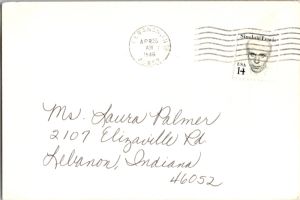 APR 30
AM
Sinclair Lewis
USA
14
Ms. Laura Palmer
2107 Elizaville Rd
Lebanon, Indiana
46052